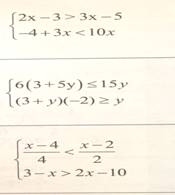 2x - 3 > 3x - 5
-4 + 3x < 10x
6(3 + 5y) ≤ 15y
(3 + y)(-2) ≥ y
(x - 4)/4 < (x - 2)/2
3 - x > 2x - 10